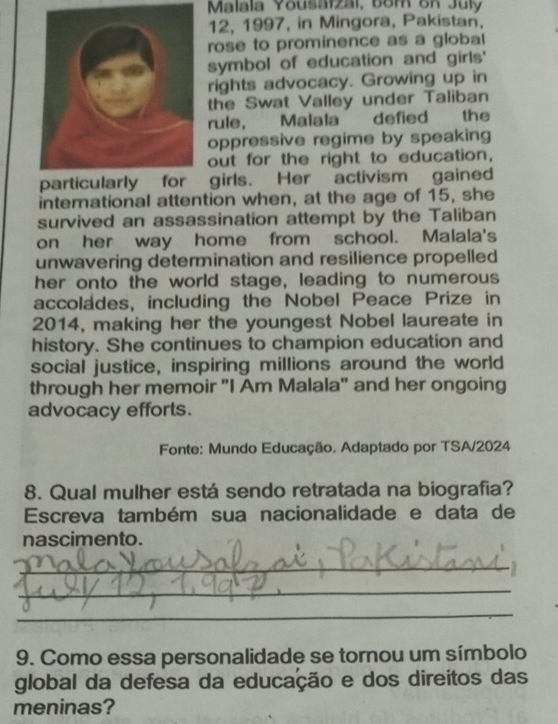 Malala Yousafzai, born on July
12, 1997, in Mingora, Pakistan,
rose to prominence as a global
symbol of education and girls'
rights advocacy. Growing up in
the Swat Valley under Taliban
rule, Malala defied the
oppressive regime by speaking
out for the right to education,
particularly for girls. Her activism gained
international attention when, at the age of 15, she
survived an assassination attempt by the Taliban
on her way home from school. Malala's
unwavering determination and resilience propelled
her onto the world stage, leading to numerous
accolades, including the Nobel Peace Prize in
2014, making her the youngest Nobel laureate in
history. She continues to champion education and
social justice, inspiring millions around the world
through her memoir "I Am Malala" and her ongoing
advocacy efforts.
Fonte: Mundo Educação. Adaptado por TSA/2024
8. Qual mulher está sendo retratada na biografia?
Escreva também sua nacionalidade e data de
nascimento.
Pakistani,
July 12, 1,997.
9. Como essa personalidade se tornou um símbolo
global da defesa da educação e dos direitos das
meninas?